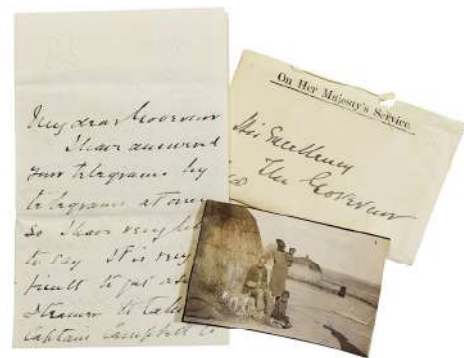 My dear Governor
I have answered
your telegrams by
telegrams at once
so I have very
to say It is very
to get a
steamer to take
Captain Campbell
On Her Majesty's Service
His Excellency
The Governor